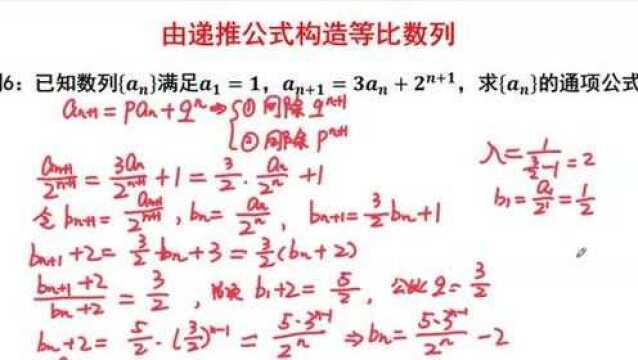 由递推公式构造等比数列
例6：已知数列{aₙ}满足a₁ = 1，aₙ₊₁ = 3aₙ + 2ⁿ⁺¹，求{aₙ}的通项公式
aₙ₊₁ = paₙ + qⁿ ⇒ { ① 同除 qⁿ⁺¹
② 同除 pⁿ⁺¹
aₙ₊₁/2ⁿ⁺¹ = 3aₙ/2ⁿ⁺¹ + 1 = 3/2 · aₙ/2ⁿ + 1
λ = 1/(3/2 - 1) = 2
令 bₙ₊₁ = aₙ₊₁/2ⁿ⁺¹, bₙ = aₙ/2ⁿ, bₙ₊₁ = 3/2 bₙ + 1
b₁ = a₁/2¹ = 1/2
bₙ₊₁ + 2 = 3/2 · bₙ + 3 = 3/2 (bₙ + 2)
(bₙ₊₁ + 2)/(bₙ + 2) = 3/2, 首项 b₁ + 2 = 5/2, 公比 q = 3/2
bₙ + 2 = 5/2 · (3/2)ⁿ⁻¹ = 5·3ⁿ⁻¹/2ⁿ ⇒ bₙ = 5·3ⁿ⁻¹/2ⁿ - 2